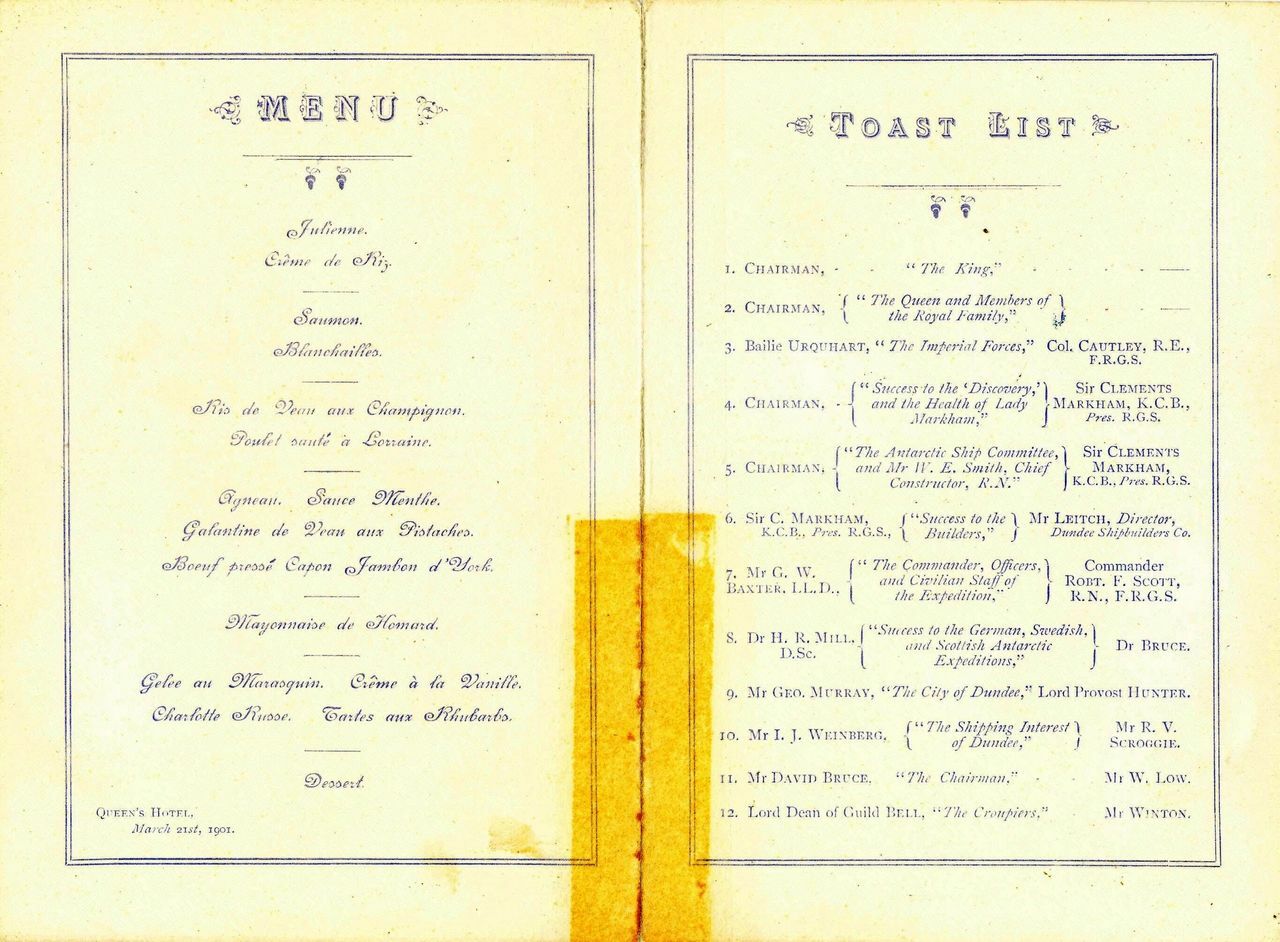 MENU
Julienne.
Crême de Riz.
Saumon.
Blanchailles.
Ris de Veau aux Champignon.
Poulet sauté à Lorraine.
Agneau. Sauce Menthe.
Galantine de Veau aux Pistaches.
Boeuf pressé Capon Jambon d'York.
Mayonnaise de Homard.
Gelee au Marasquin. Crême à la Vanille.
Charlotte Russe. Tartes aux Rhubarbs.
Dessert.
QUEEN'S HOTEL,
March 21st, 1901.
TOAST LIST
1. CHAIRMAN, - - "The King," - - - - —
2. CHAIRMAN, { "The Queen and Members of
the Royal Family," } - —
3. Bailie URQUHART, "The Imperial Forces," Col. CAUTLEY, R.E.,
F.R.G.S.
4. CHAIRMAN, - { "Success to the 'Discovery,' } Sir CLEMENTS
and the Health of Lady MARKHAM, K.C.B.,
Markham," Pres. R.G.S.
5. CHAIRMAN, { "The Antarctic Ship Committee, } Sir CLEMENTS
and Mr W. E. Smith, Chief MARKHAM,
Constructor, R.N." K.C.B., Pres. R.G.S.
6. Sir C. MARKHAM, { "Success to the } Mr LEITCH, Director,
K.C.B., Pres. R.G.S., Builders," Dundee Shipbuilders Co.
7. Mr G. W. { "The Commander, Officers, } Commander
BAXTER, LL.D., and Civilian Staff of ROBT. F. SCOTT,
the Expedition," R.N., F.R.G.S.
8. Dr H. R. MILL, { "Success to the German, Swedish, }
D.Sc. and Scottish Antarctic Dr BRUCE.
Expeditions,"
9. Mr GEO. MURRAY, "The City of Dundee," Lord Provost HUNTER.
10. Mr I. J. WEINBERG, { "The Shipping Interest } Mr R. V.
of Dundee," SCROGGIE.
11. Mr DAVID BRUCE, "The Chairman," - - Mr W. LOW.
12. Lord Dean of Guild BELL, "The Croupiers," Mr WINTON.